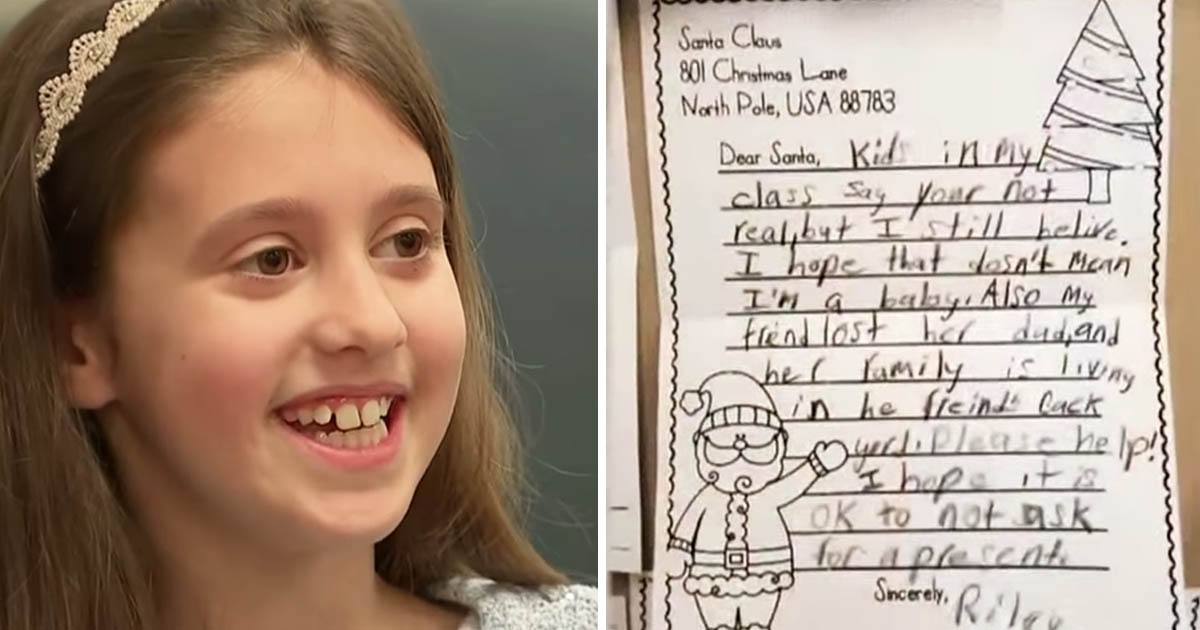 Santa Claus
801 Christmas Lane
North Pole, USA 88783
Dear Santa, Kids in my
class say your not
real, but I still belive.
I hope that dosn't mean
I'm a baby. Also my
freind lost her dad, and
her family is living
in he freinds back
yerd. Please help!
I hope it is
OK to not ask
for a present.
Sincerely, Riley